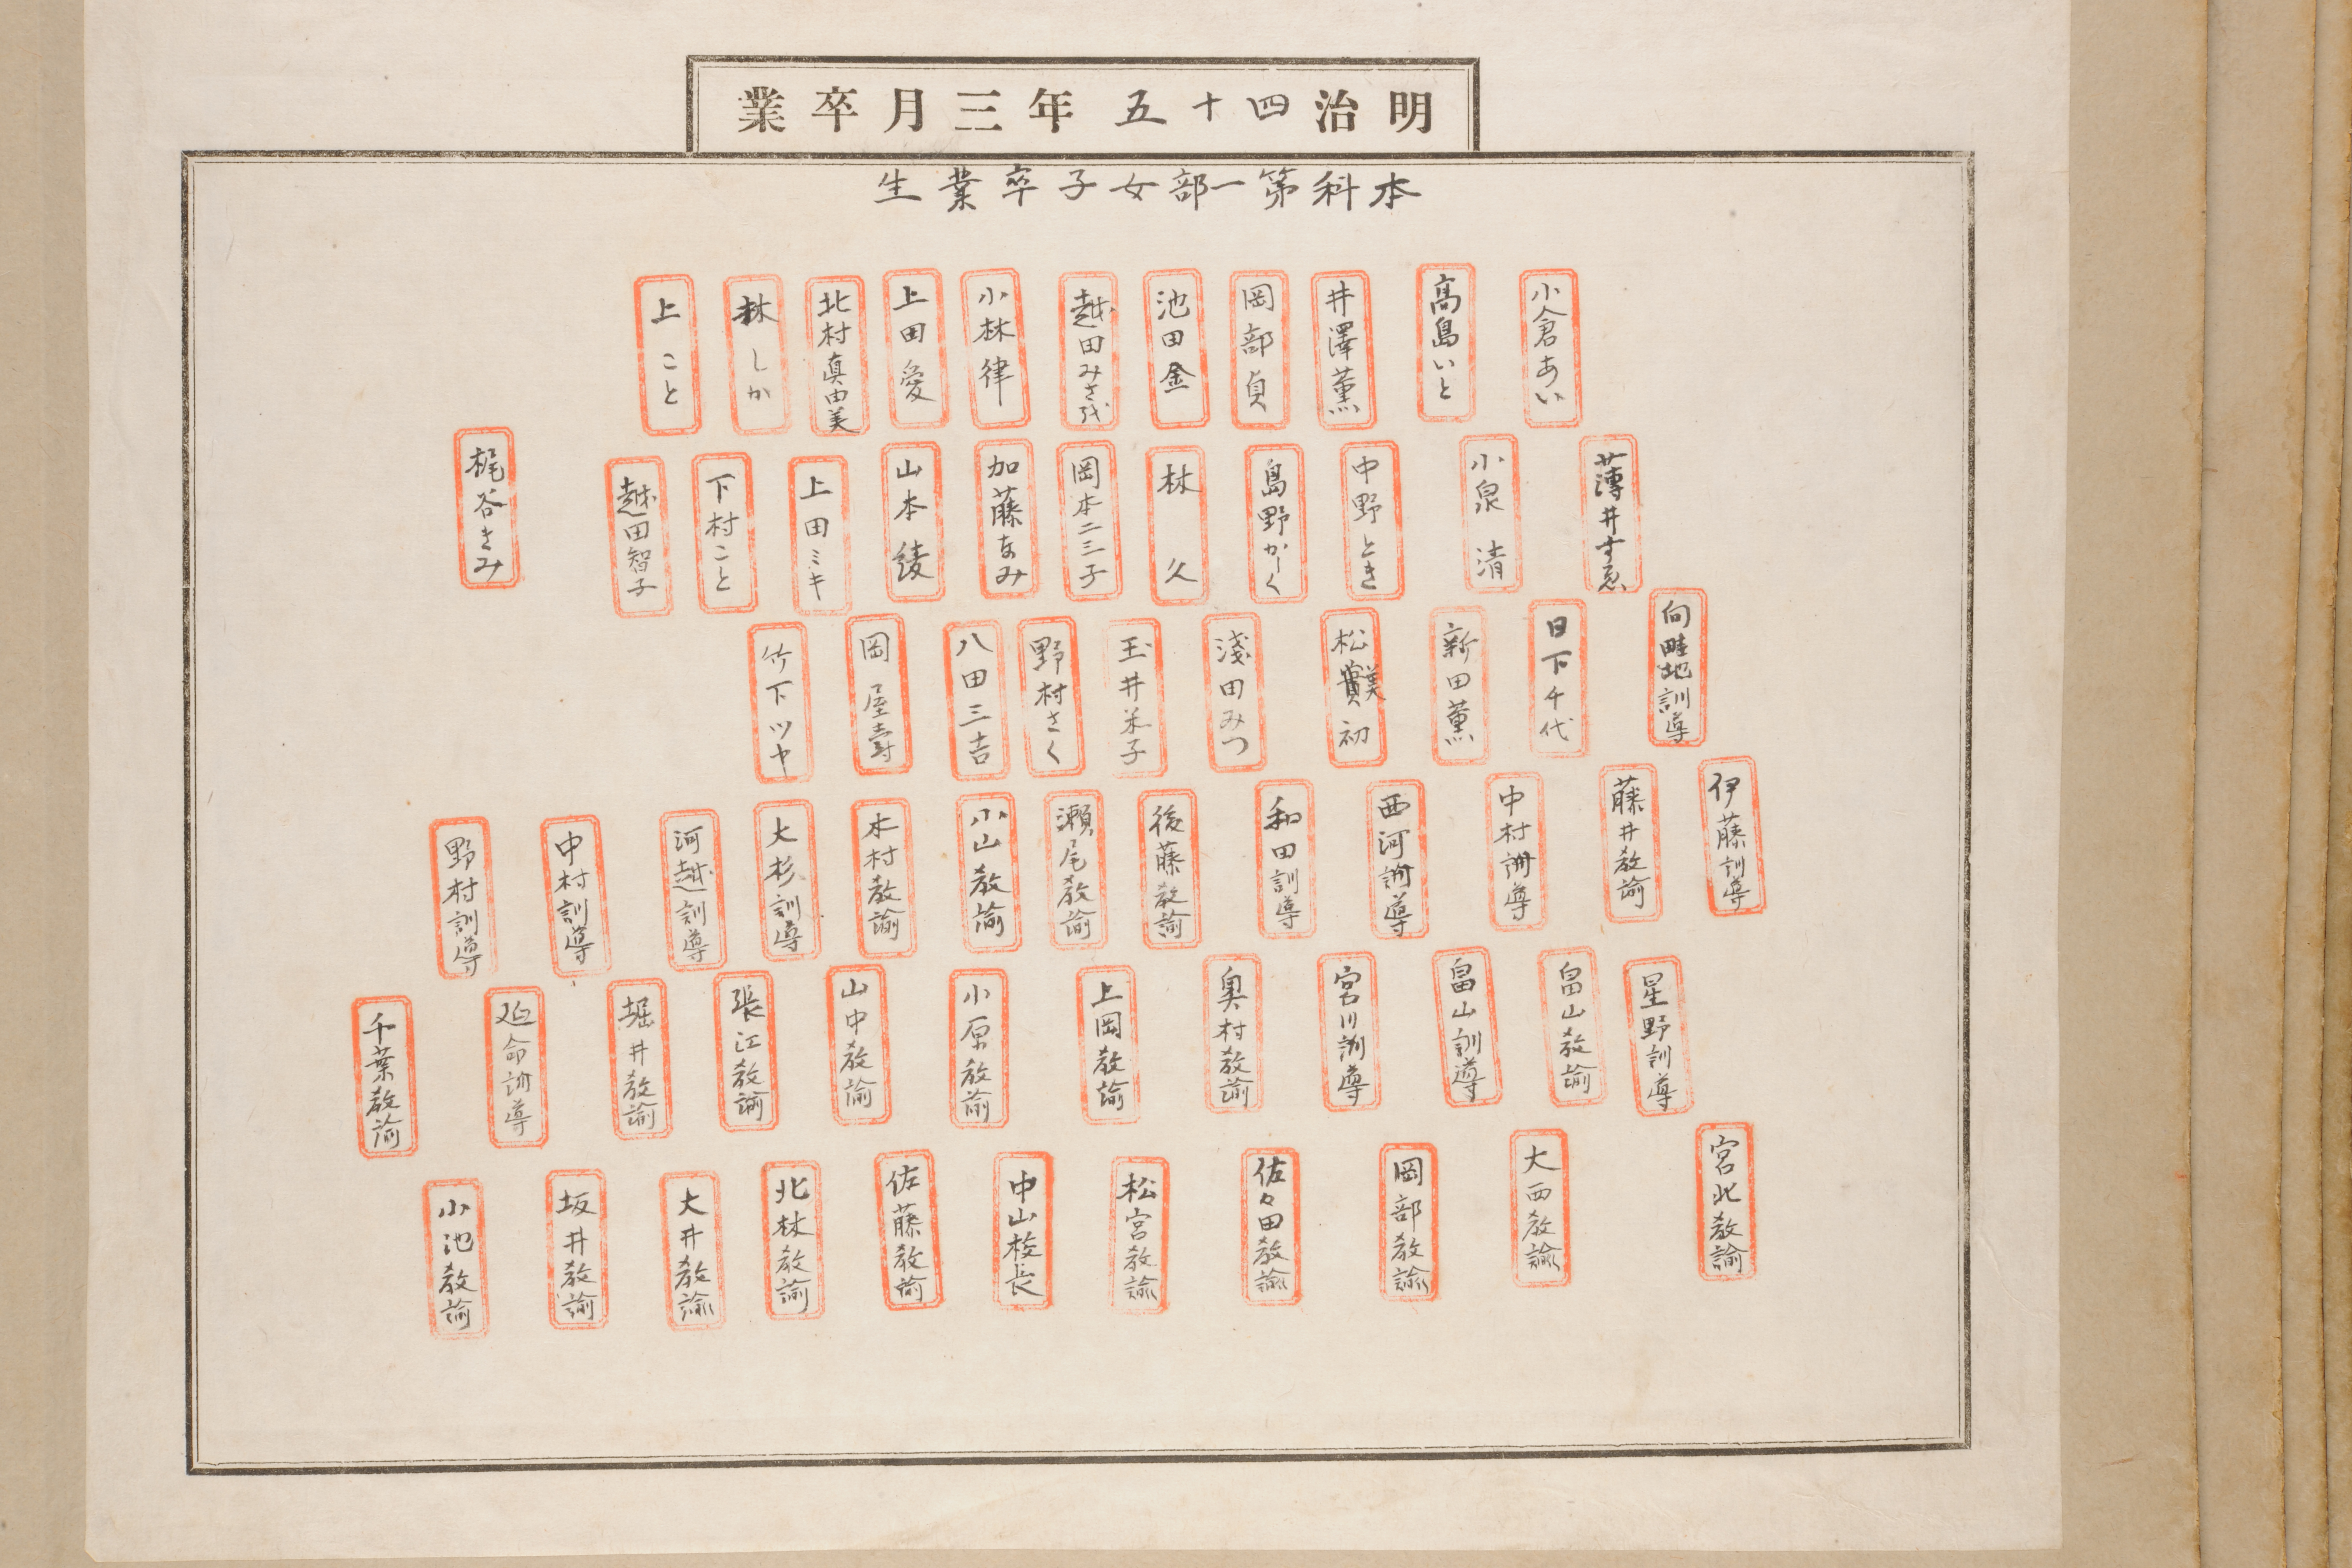 明治四十五年三月卒業
本科第一部女子卒業生
小倉あい
高島いと
井澤薫
岡部貞
池田金
越田みさを
小林律
上田愛
北村真由美
林しか
上こと
薄井すゑ
小泉清
中野とき
島野かく
林久
岡本二三子
加藤なみ
山本綾
上田ミキ
下村こと
越田智子
梶谷きみ
向畦地訓導
日下千代
新田薫
松初
淺田みつ
玉井米子
野村さく
八田三吉
岡屋壽
竹下ツヤ
伊藤訓導
藤井教諭
中村訓導
西河訓導
和田訓導
後藤教諭
瀬尾教諭
小山教諭
木村教諭
大杉訓導
河越訓導
中村訓導
野村訓導
星野訓導
畠山教諭
畠山訓導
宮川訓導
奥村教諭
上岡教諭
小原教諭
山中教諭
張江教諭
堀井教諭
延命訓導
千葉教諭
宮北教諭
大西教諭
岡部教諭
佐々田教諭
松宮教諭
中山校長
佐藤教諭
北林教諭
大井教諭
坂井教諭
小池教諭